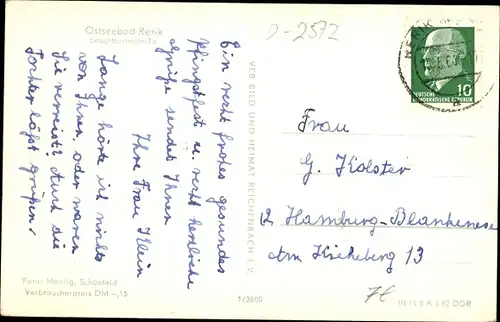 Ostseebad Rerik
Leuchtturmstraße
D-2572
Ein recht frohes gesundes
Pfingstfest u. recht herzliche
Grüße sendet Ihnen
Ihre Frau Klein
Lange hörte ich nichts
von Ihnen, oder waren
Sie verreist? Auch die
Tochter läßt grüßen.
VEB BILD UND HEIMAT REICHENBACH I. V.
1/3800
10
DEUTSCHE
DEMOKRATISCHE REPUBLIK
RERIK
Frau
G. Kolster
2 Hamburg-Blankenese
Am Kiekeberg 13
Foto: Mentig, Schönfeld
Verbraucherpreis DM -,15
III 18 6 A 3 62 DDR